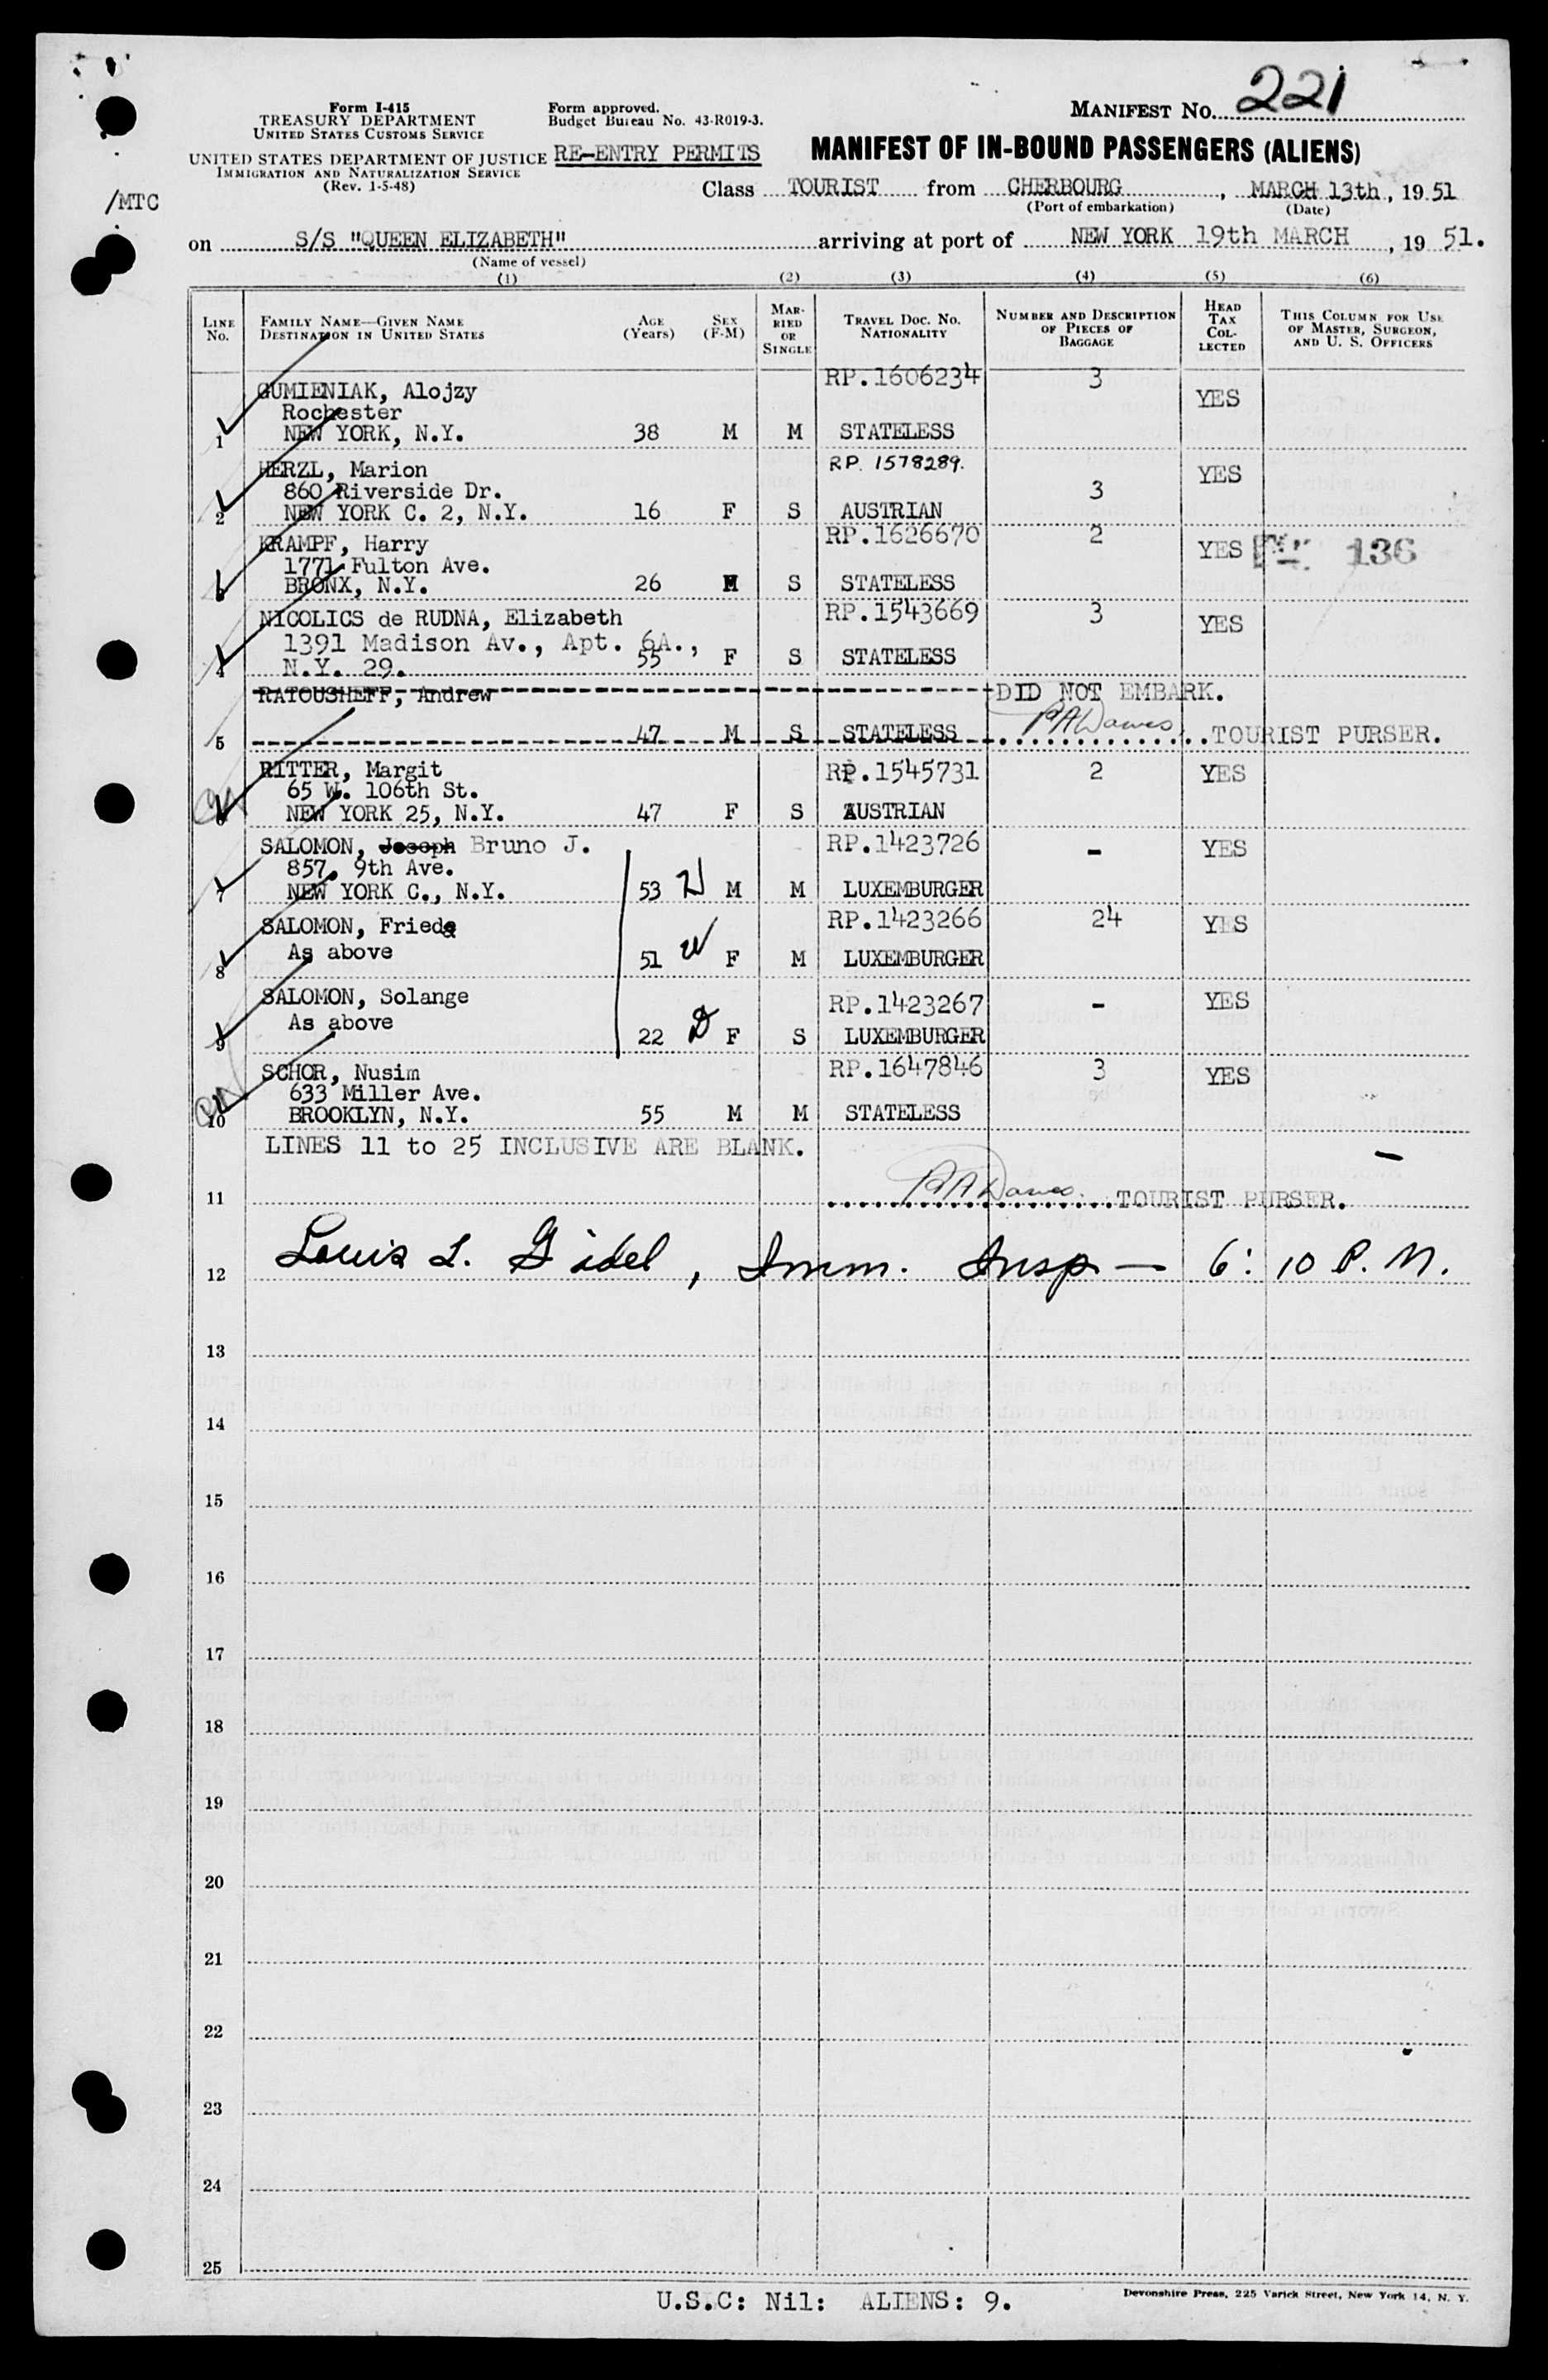 Form I-415
TREASURY DEPARTMENT
UNITED STATES CUSTOMS SERVICE
UNITED STATES DEPARTMENT OF JUSTICE
IMMIGRATION AND NATURALIZATION SERVICE
(Rev. 1-5-48)
/MTC
Form approved.
Budget Bureau No. 43-R019-3.
RE-ENTRY PERMITS
MANIFEST No. 221
MANIFEST OF IN-BOUND PASSENGERS (ALIENS)
Class TOURIST from CHERBOURG, MARCH 13th, 19 51
(Port of embarkation) (Date)
on S/S "QUEEN ELIZABETH" arriving at port of NEW YORK 19th MARCH, 19 51.
(Name of vessel)
(1) (2) (3) (4) (5) (6)
LINE No. FAMILY NAME—GIVEN NAME DESTINATION IN UNITED STATES AGE (Years) SEX (F-M) MARRIED OR SINGLE TRAVEL DOC. No. NATIONALITY NUMBER AND DESCRIPTION OF PIECES OF BAGGAGE HEAD TAX COLLECTED THIS COLUMN FOR USE OF MASTER, SURGEON, AND U. S. OFFICERS
GUMIENIAK, Alojzy RP.1606234 3 YES
Rochester
1 NEW YORK, N.Y. 38 M M STATELESS
HERZL, Marion RP. 1578289. YES
860 Riverside Dr. 3
2 NEW YORK C. 2, N.Y. 16 F S AUSTRIAN
KRAMPF, Harry RP.1626670 2 YES 136
1771 Fulton Ave.
3 BRONX, N.Y. 26 M S STATELESS
NICOLICS de RUDNA, Elizabeth RP.1543669 3 YES
1391 Madison Av., Apt. 6A.,
4 N.Y. 29. 55 F S STATELESS
RATOUSHEFF, Andrew DID NOT EMBARK.
5 47 M S STATELESS PA Dawes TOURIST PURSER.
RITTER, Margit RP.1545731 2 YES
65 W. 106th St.
6 NEW YORK 25, N.Y. 47 F S AUSTRIAN
SALOMON, Joseph Bruno J. RP.1423726 - YES
857, 9th Ave.
7 NEW YORK C., N.Y. 53 M M LUXEMBURGER
SALOMON, Frieda RP.1423266 24 YES
As above
8 51 F M LUXEMBURGER
SALOMON, Solange RP.1423267 - YES
As above
9 22 F S LUXEMBURGER
SCHOR, Nusim RP.1647846 3 YES
633 Miller Ave.
10 BROOKLYN, N.Y. 55 M M STATELESS
LINES 11 to 25 INCLUSIVE ARE BLANK.
11 PA Dawes. TOURIST PURSER.
12 Louis L. Gidel, Imm. Insp — 6:10 P.M.
13
14
15
16
17
18
19
20
21
22
23
24
25
U.S.C: Nil: ALIENS: 9.
Devonshire Press, 225 Varick Street, New York 14, N. Y.